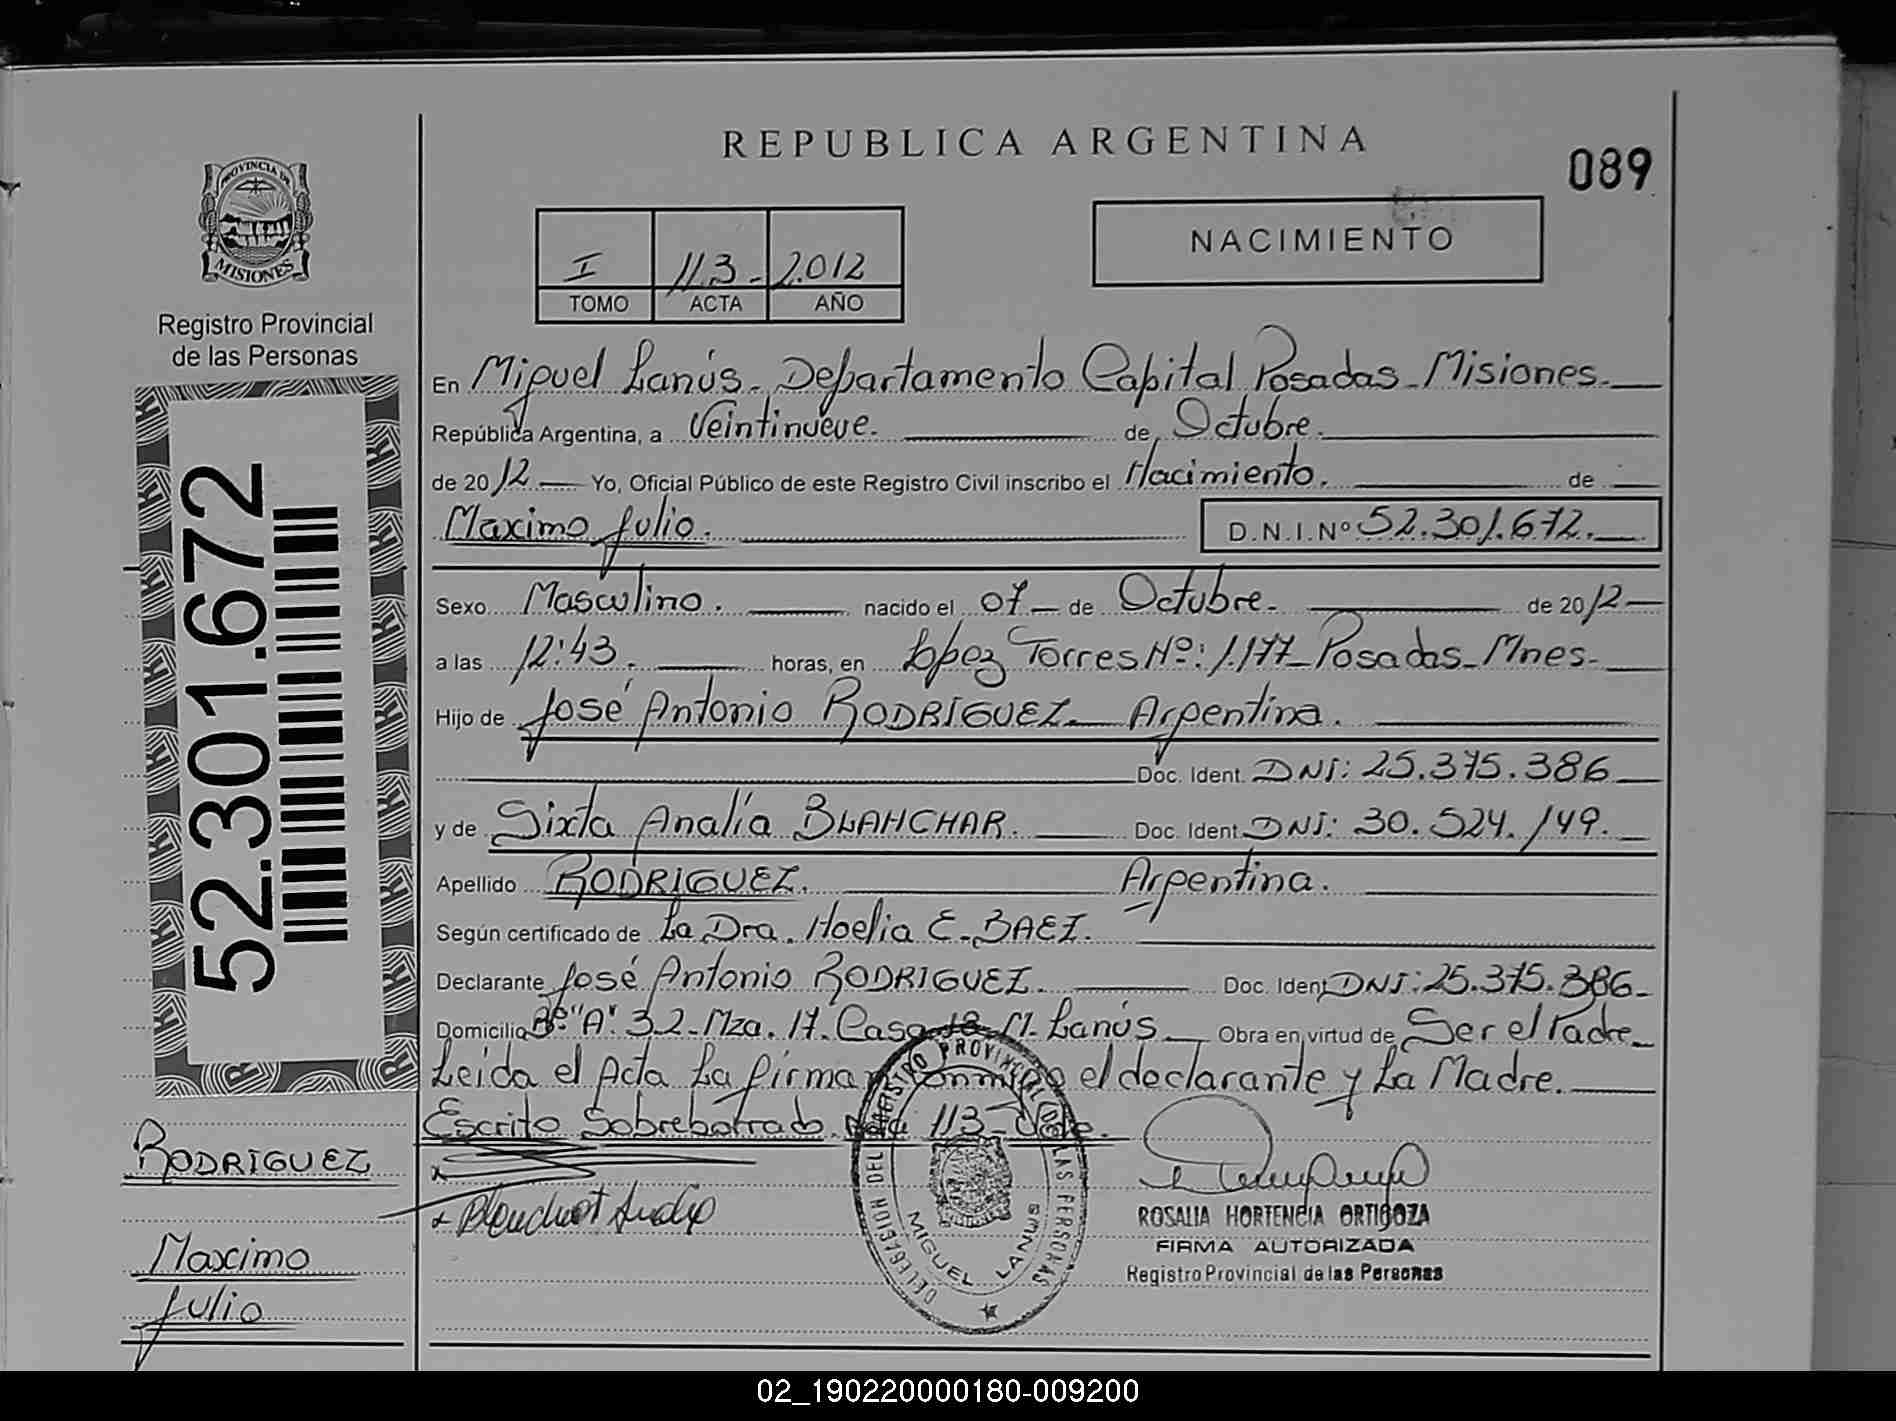 REPUBLICA ARGENTINA
089
PROVINCIA DE
MISIONES
Registro Provincial
de las Personas
I 113- 2.012
TOMO ACTA AÑO
NACIMIENTO
En Miguel Lanús. Departamento Capital Posadas - Misiones.
República Argentina, a Veintinueve. de Octubre.
de 2012 Yo, Oficial Público de este Registro Civil inscribo el Nacimiento. de
Maximo Julio. D.N.I.Nº 52.301.672.
Sexo Masculino. nacido el 07 de Octubre. de 2012
a las 12:43. horas, en López Torres Nº: 1.177 - Posadas - Mnes.
Hijo de José Antonio RODRÍGUEZ Argentina.
Doc. Ident. DNI: 25.375.386
y de Sixta Analía BLANCHAR. Doc. Ident. DNI: 30.524.149.
Apellido RODRÍGUEZ. Argentina.
Según certificado de La Dra. Noelia E. BAEZ.
Declarante José Antonio RODRIGUEZ. Doc. Ident DNI: 25.375.386
Domicilia Bº "A" 3.2 - Mza. 17. Casa 18 M. Lanús. Obra en virtud de Ser el Padre
Leida el Acta La firman conmigo el declarante y La Madre.
Escrito Sobreborrado. 113- Vale.
Blanchart Analia
52.301.672
RODRIGUEZ
Maximo
Julio
DELEGACION DEL REGISTRO PROVINCIAL DE LAS PERSONAS
MIGUEL LANUS
ROSALIA HORTENCIA ORTIGOZA
FIRMA AUTORIZADA
Registro Provincial de las Personas
02_190220000180-009200